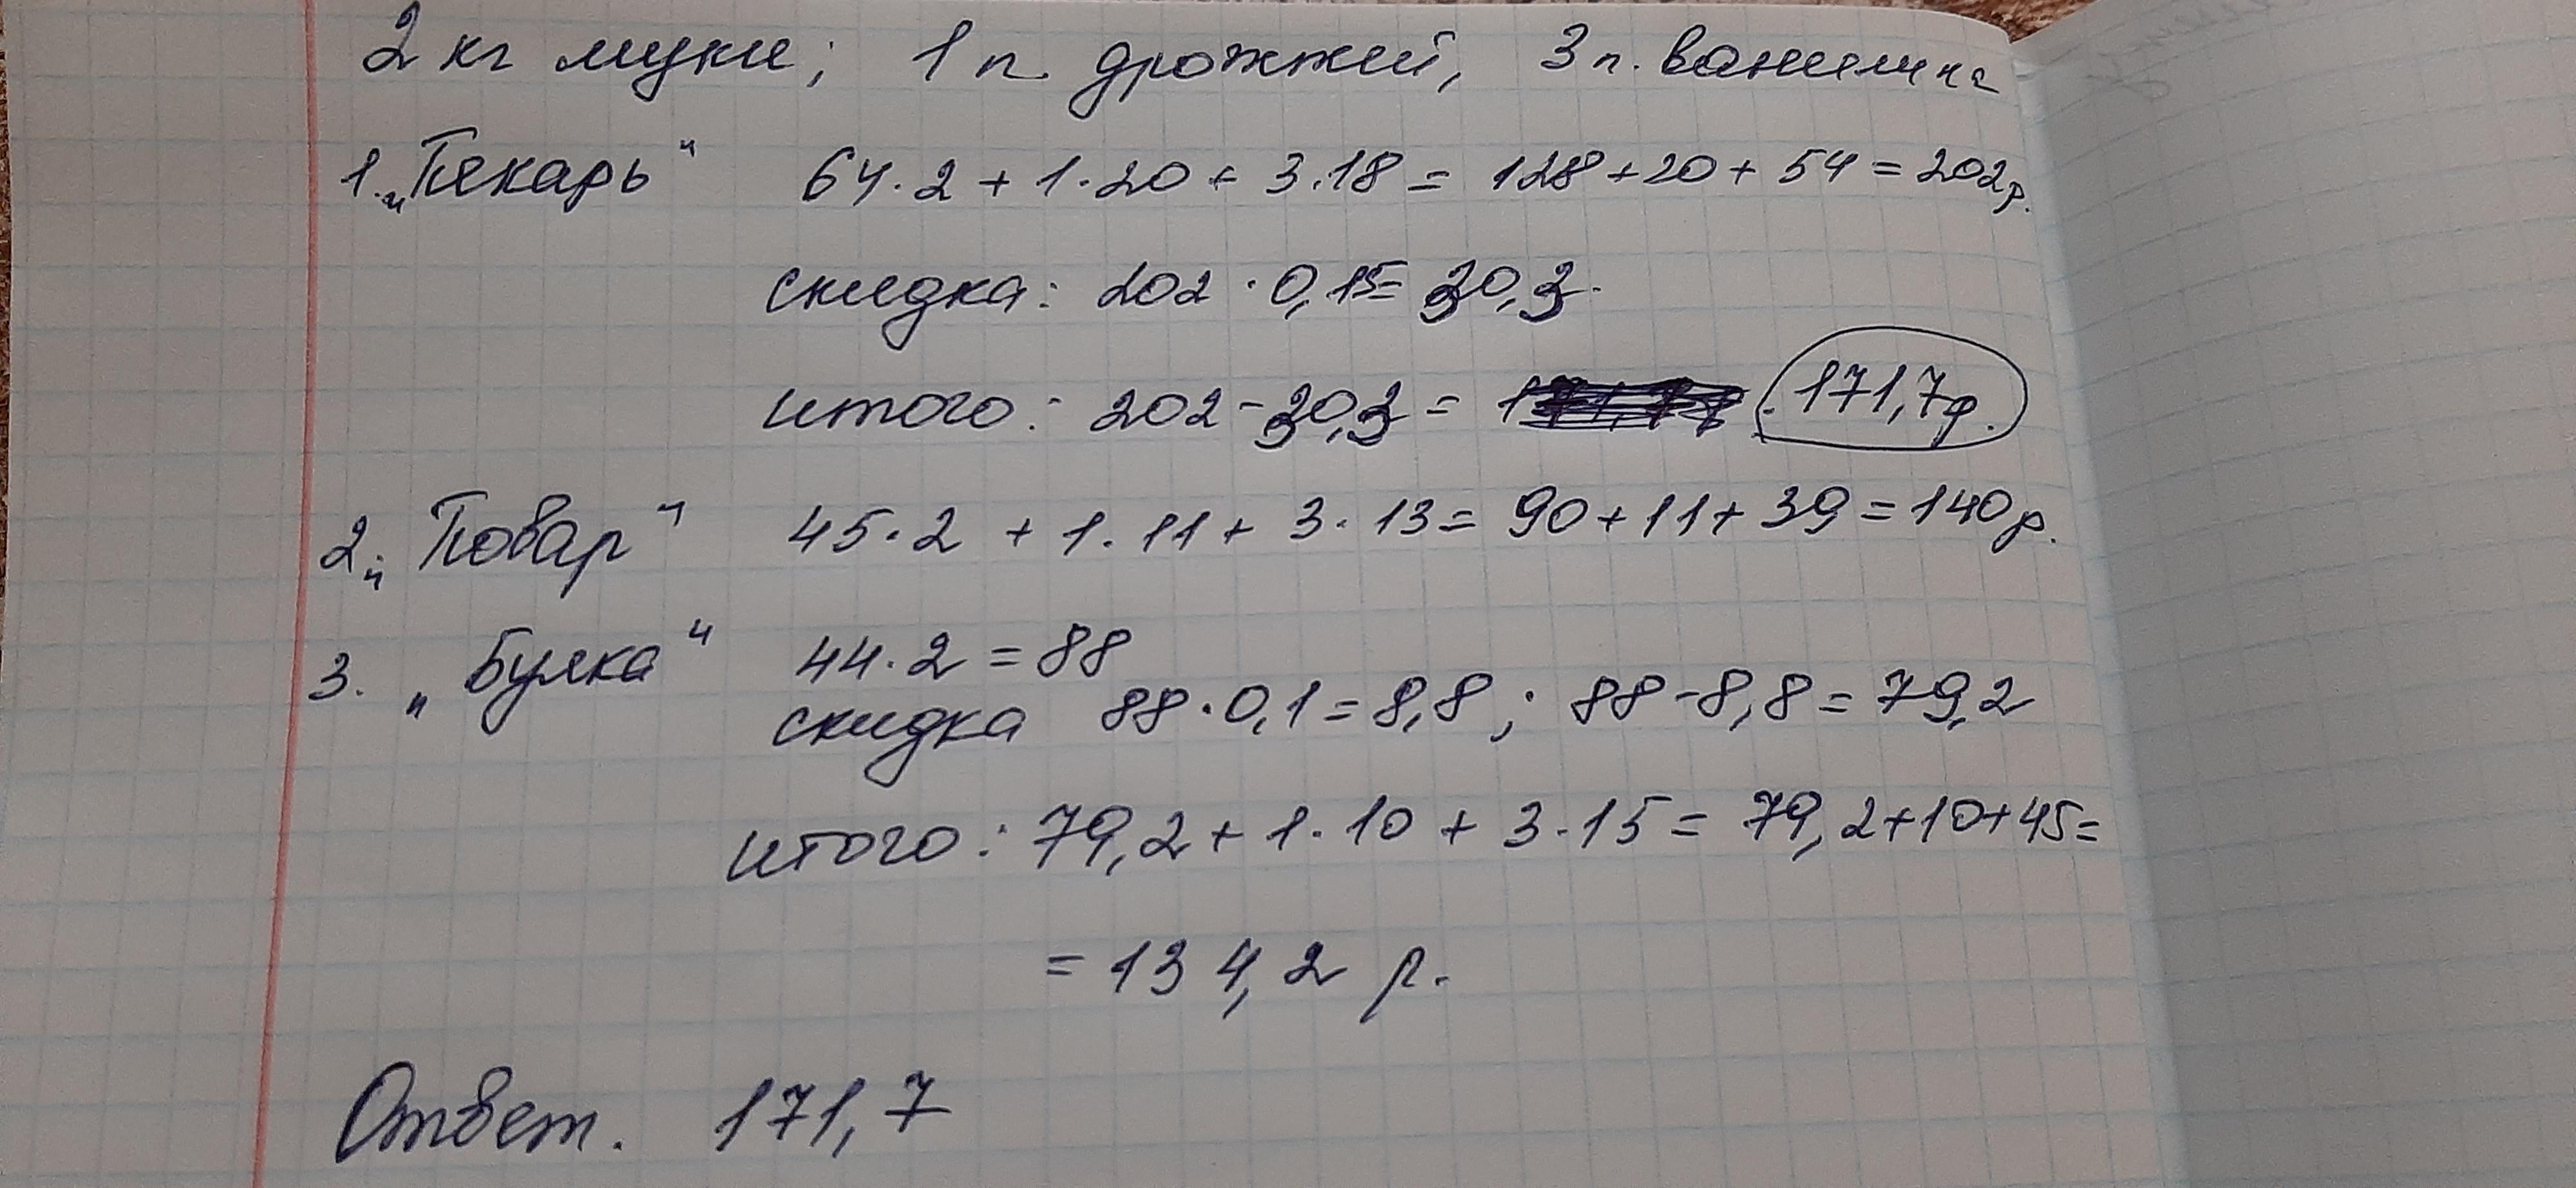 2 кг муки; 1 п. дрожжей, 3 п. ванилина
1. „Пекарь" 64·2 + 1·20 + 3·18 = 128+20+54 = 202р.
скидка: 202 · 0,15= 30,3.
итого: 202-30,3 = 171,7р.
2. „Повар" 45·2 + 1·11+ 3·13= 90+11+39=140р.
3. „Булка" 44·2 = 88
скидка 88·0,1=8,8; 88-8,8=79,2
итого: 79,2+1·10+3·15= 79,2+10+45=
= 134,2 р.
Ответ. 171,7